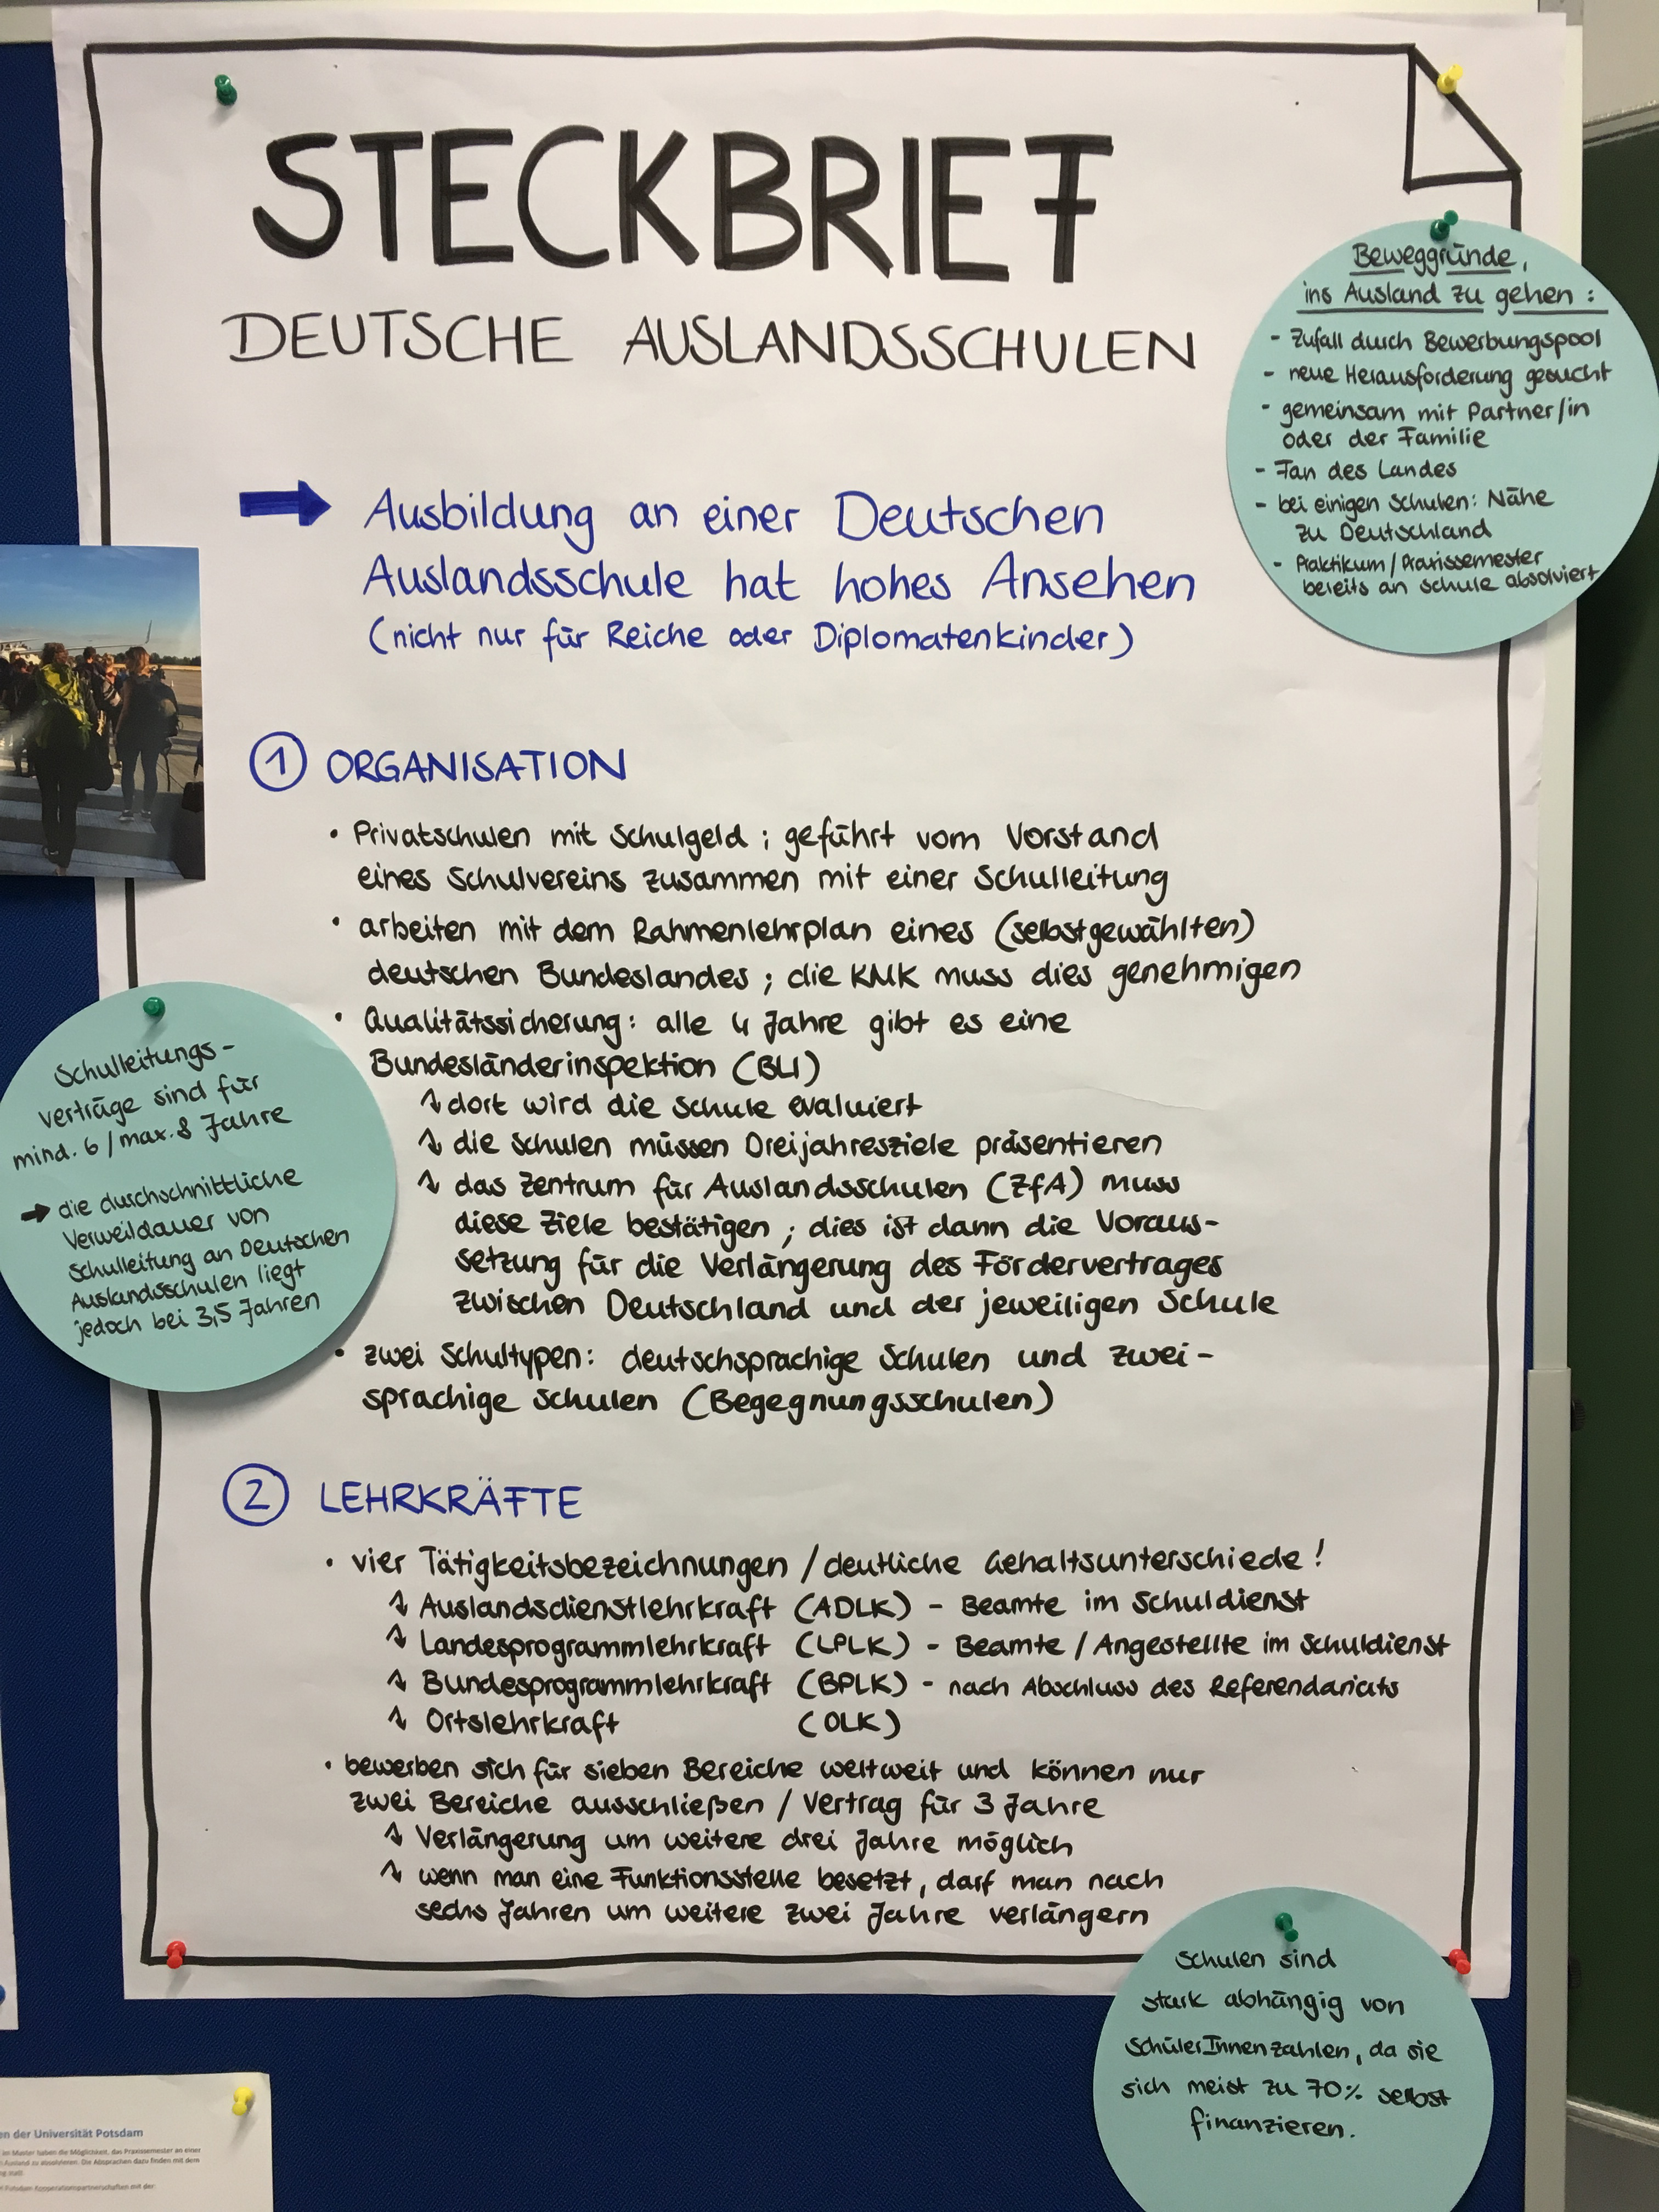 STECKBRIEF
DEUTSCHE AUSLANDSSCHULEN
Beweggründe,
ins Ausland zu gehen :
- Zufall durch Bewerbungspool
- neue Herausforderung gesucht
- gemeinsam mit Partner/in
oder der Familie
- Fan des Landes
- bei einigen Schulen: Nähe
zu Deutschland
- Praktikum/Praxissemester
bereits an Schule absolviert
Ausbildung an einer Deutschen
Auslandsschule hat hohes Ansehen
(nicht nur für Reiche oder Diplomatenkinder)
1 ORGANISATION
• Privatschulen mit Schulgeld ; geführt vom Vorstand
eines Schulvereins zusammen mit einer Schulleitung
• arbeiten mit dem Rahmenlehrplan eines (selbstgewählten)
deutschen Bundeslandes ; die KMK muss dies genehmigen
• Qualitätssicherung: alle 4 Jahre gibt es eine
Bundesländerinspektion (BLI)
↳ dort wird die Schule evaluiert
↳ die Schulen müssen Dreijahresziele präsentieren
↳ das Zentrum für Auslandsschulen (ZfA) muss
diese Ziele bestätigen ; dies ist dann die Voraus-
setzung für die Verlängerung des Fördervertrages
zwischen Deutschland und der jeweiligen Schule
• zwei Schultypen: deutschsprachige Schulen und zwei-
sprachige Schulen (Begegnungsschulen)
Schulleitungs-
verträge sind für
mind. 6/max. 8 Jahre
→ die durchschnittliche
Verweildauer von
Schulleitung an Deutschen
Auslandsschulen liegt
jedoch bei 3,5 Jahren
2 LEHRKRÄFTE
• vier Tätigkeitsbezeichnungen / deutliche Gehaltsunterschiede!
↳ Auslandsdienstlehrkraft (ADLK) - Beamte im Schuldienst
↳ Landesprogrammlehrkraft (LPLK) - Beamte / Angestellte im Schuldienst
↳ Bundesprogrammlehrkraft (BPLK) - nach Abschluss des Referendariats
↳ Ortslehrkraft (OLK)
• bewerben sich für sieben Bereiche weltweit und können nur
zwei Bereiche ausschließen / Vertrag für 3 Jahre
↳ Verlängerung um weitere drei Jahre möglich
↳ wenn man eine Funktionsstelle besetzt, darf man nach
sechs Jahren um weitere zwei Jahre verlängern
Schulen sind
stark abhängig von
SchülerInnenzahlen, da sie
sich meist zu 70% selbst
finanzieren.
en der Universität Potsdam
im Master haben die Möglichkeit, das Praxissemester an einer
Ausland zu absolvieren. Die Absprachen dazu finden mit dem
Potsdam Kooperationspartnerschaften mit der